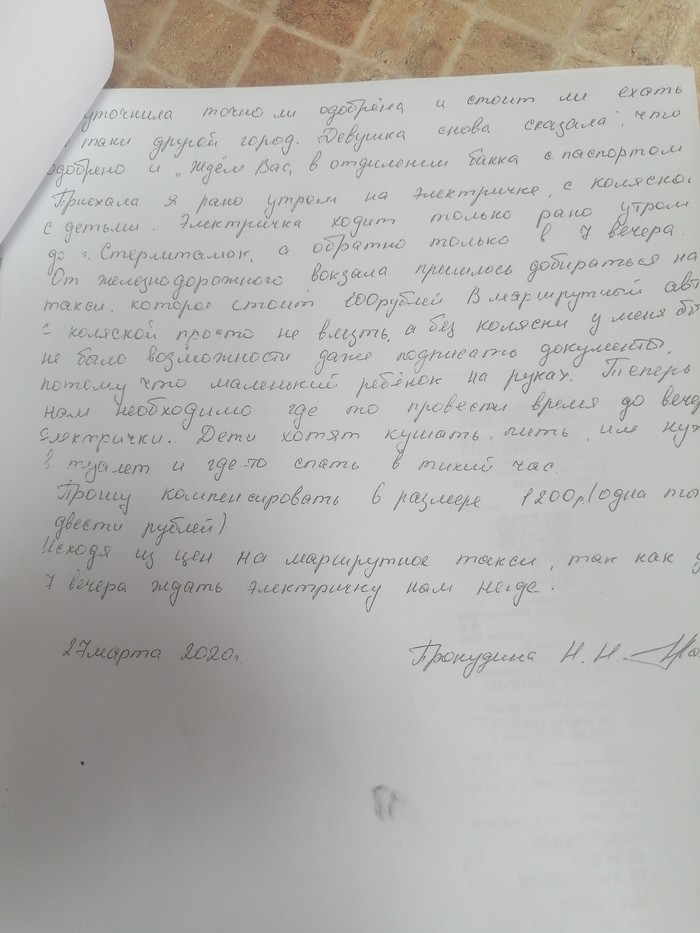 уточнила точно ли одобрена и стоит ли ехать
таки другой город. Девушка снова сказала, что
одобрено и „ждём Вас, в отделении банка с паспортом
Приехала я рано утром на электричке, с коляской
с детьми. Электричка ходит только рано утром
до г. Стерлитамак, а обратно только в 7 вечера.
От железнодорожного вокзала пришлось добираться на
такси, которое стоит 100рублей В маршрутный авт
с коляской просто не влезть, а без коляски у меня бы
не было возможности даже подписать документы,
потому что маленький ребёнок на руках. Теперь
нам необходимо где то провести время до вече
электрички. Дети хотят кушать, пить, им нуж
в туалет и где-то спать в тихий час.
Прошу компенсировать в размере 1200р.(одна ты
двести рублей)
Исходя из цен на маршрутное такси, так как д
7 вечера ждать электричку нам негде.
27марта 2020г.
Прокудина Н. Н.